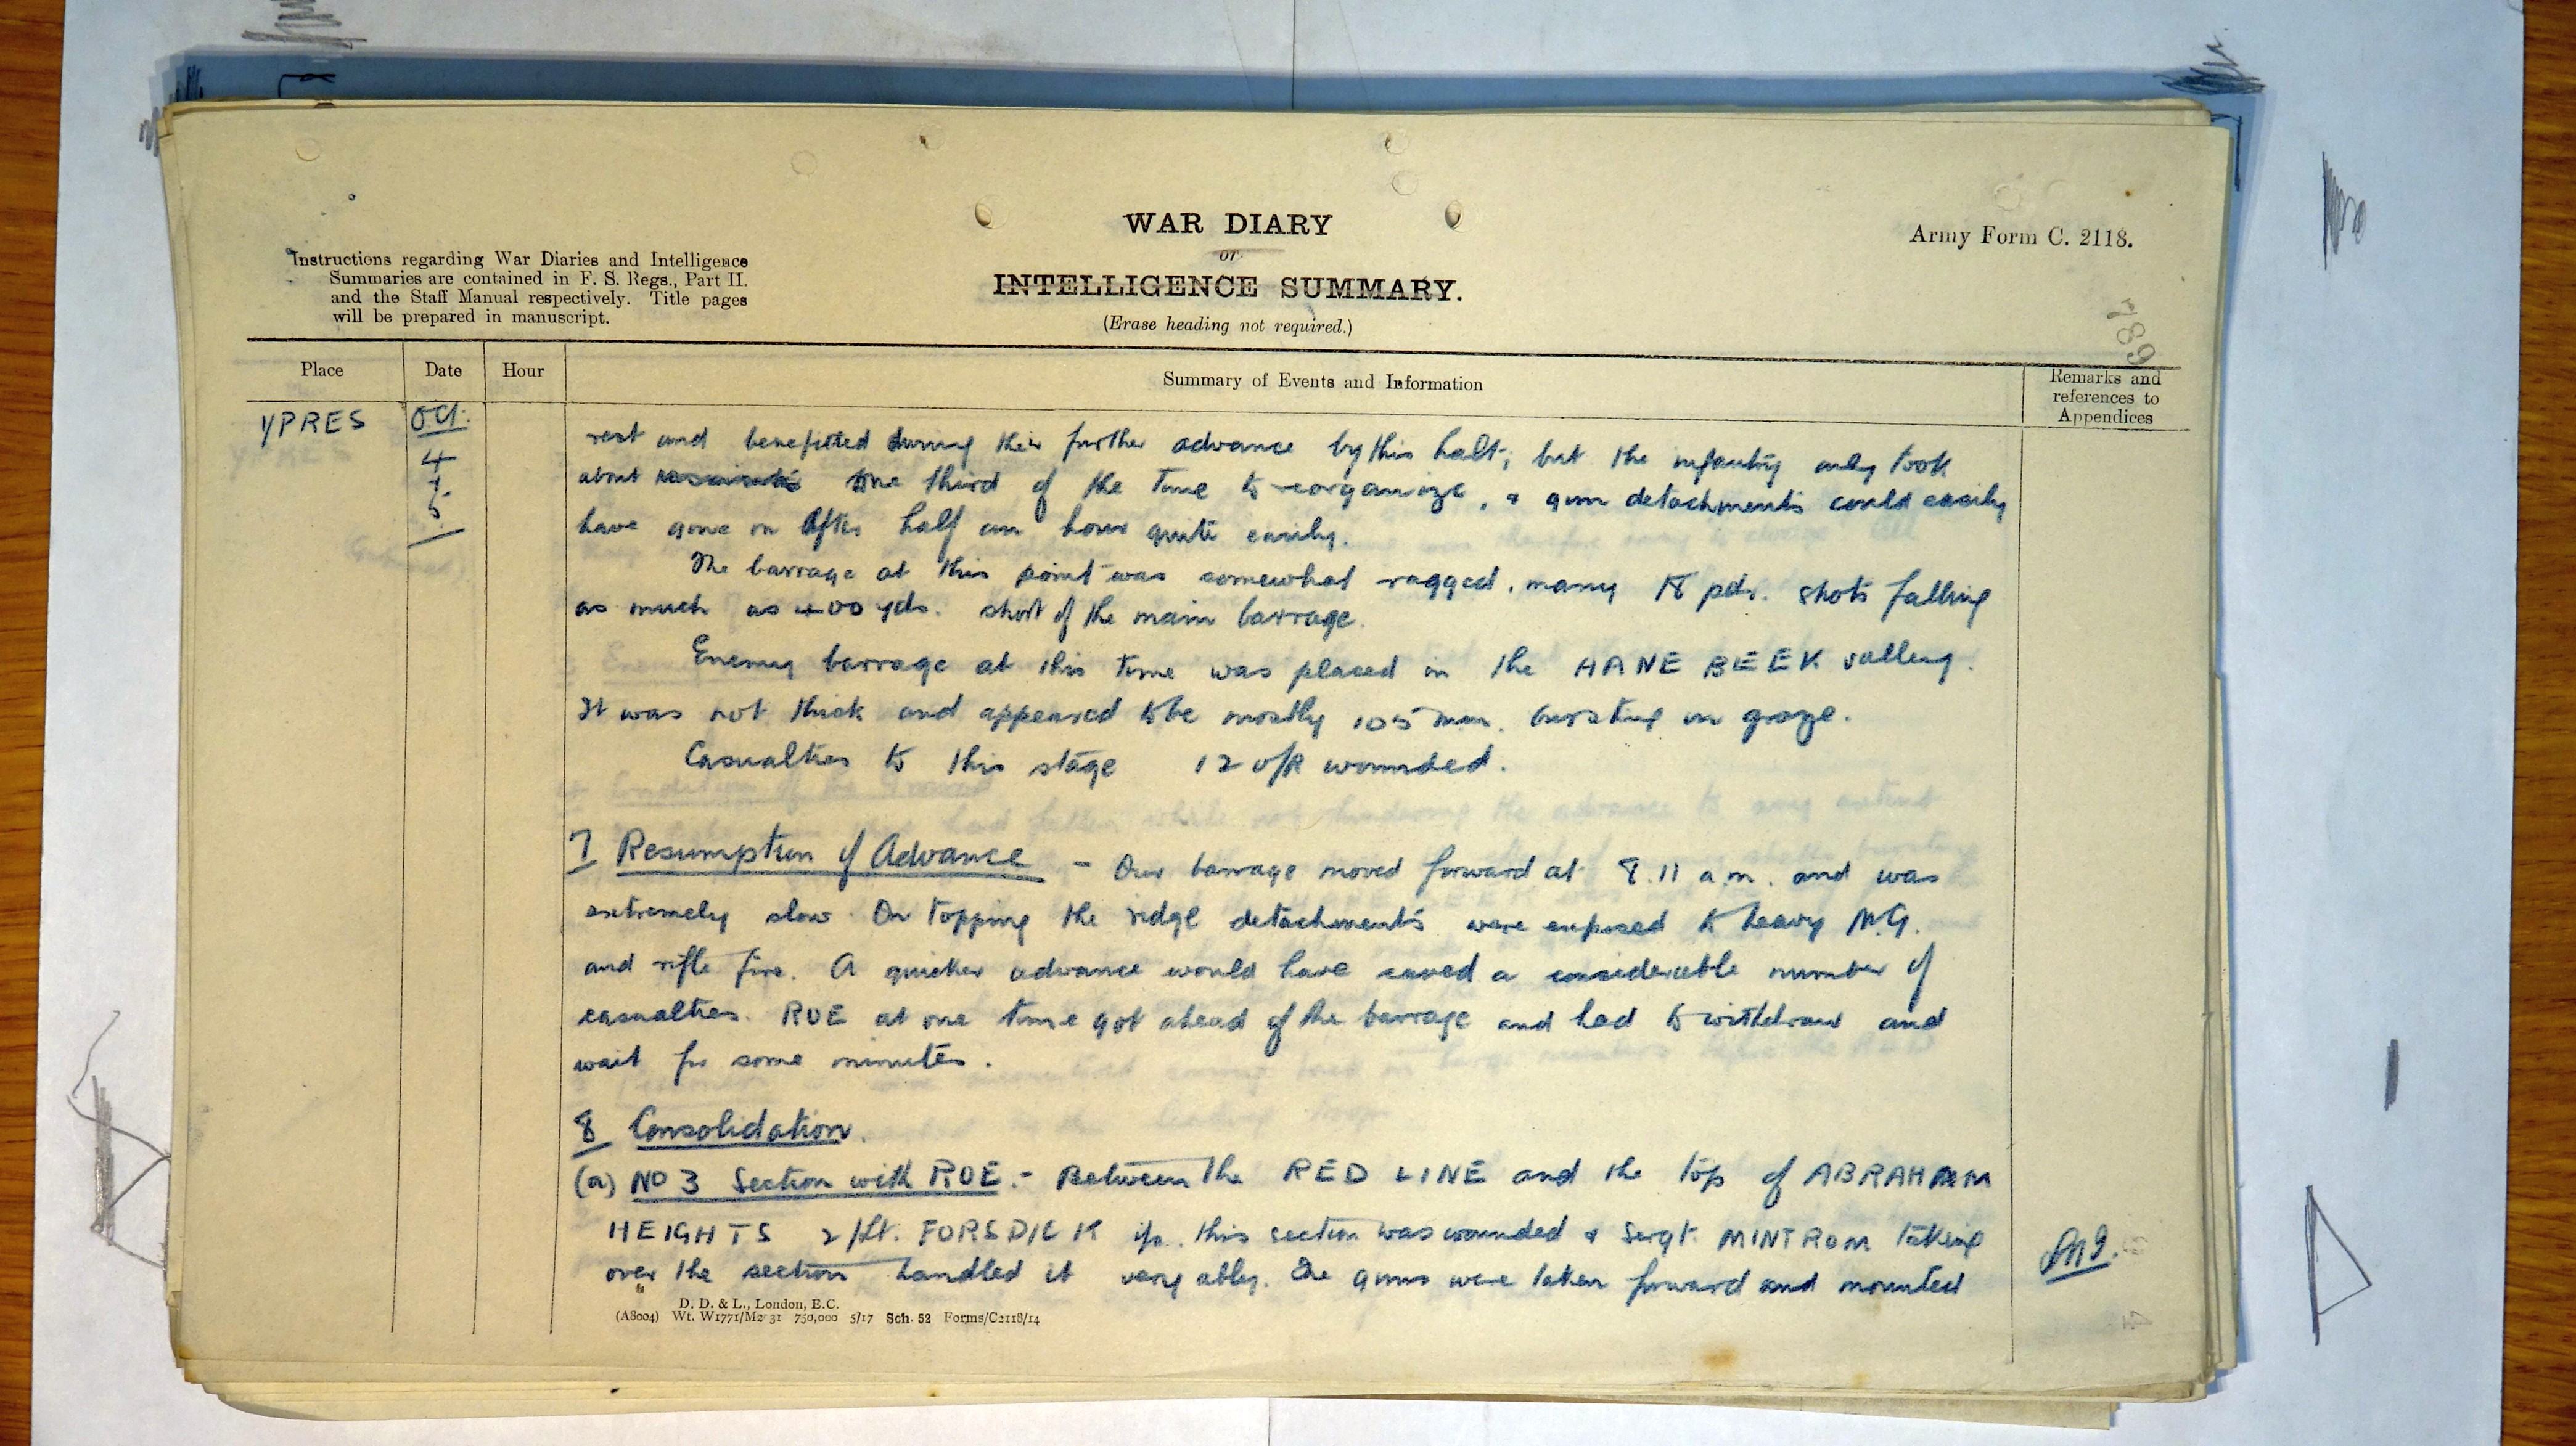 WAR DIARY
or
INTELLIGENCE SUMMARY.
(Erase heading not required.)
Army Form C. 2118.
Instructions regarding War Diaries and Intelligence
Summaries are contained in F. S. Regs., Part II.
and the Staff Manual respectively. Title pages
will be prepared in manuscript.
789
Place Date Hour Summary of Events and Information Remarks and
references to
Appendices
YPRES
Oct.
4
5
rest and benefitted during their further advance by this halt, but the infantry only took
about one third of the time to reorganize, & gun detachments could easily
have gone on after half an hour quite easily.
The barrage at this point was somewhat ragged, many 18 pdr. shots falling
as much as 400 yds. short of the main barrage.
Enemy barrage at this time was placed in the HANE BEEK valley.
It was not thick and appeared to be mostly 105 mm. bursting on graze.
Casualties to this stage 12 o/R wounded.
7 Resumption of Advance - Our barrage moved forward at 8.11 a.m. and was
extremely slow. On topping the ridge detachments were exposed to heavy M.G.
and rifle fire. A quicker advance would have saved a considerable number of
casualties. ROE at one time got ahead of the barrage and had to withdraw and
wait for some minutes.
8 Consolidation.
(a) NO 3 Section with ROE.- Between the RED LINE and the top of ABRAHAM
HEIGHTS 2/Lt. FORSDICK i/c. this section was wounded & Sergt. MINTROM taking
over the section handled it very ably. The guns were taken forward and mounted
D. D. & L., London, E.C.
(A8004) Wt. W1771/M2 31 750,000 5/17 Sch. 52 Forms/C2118/14